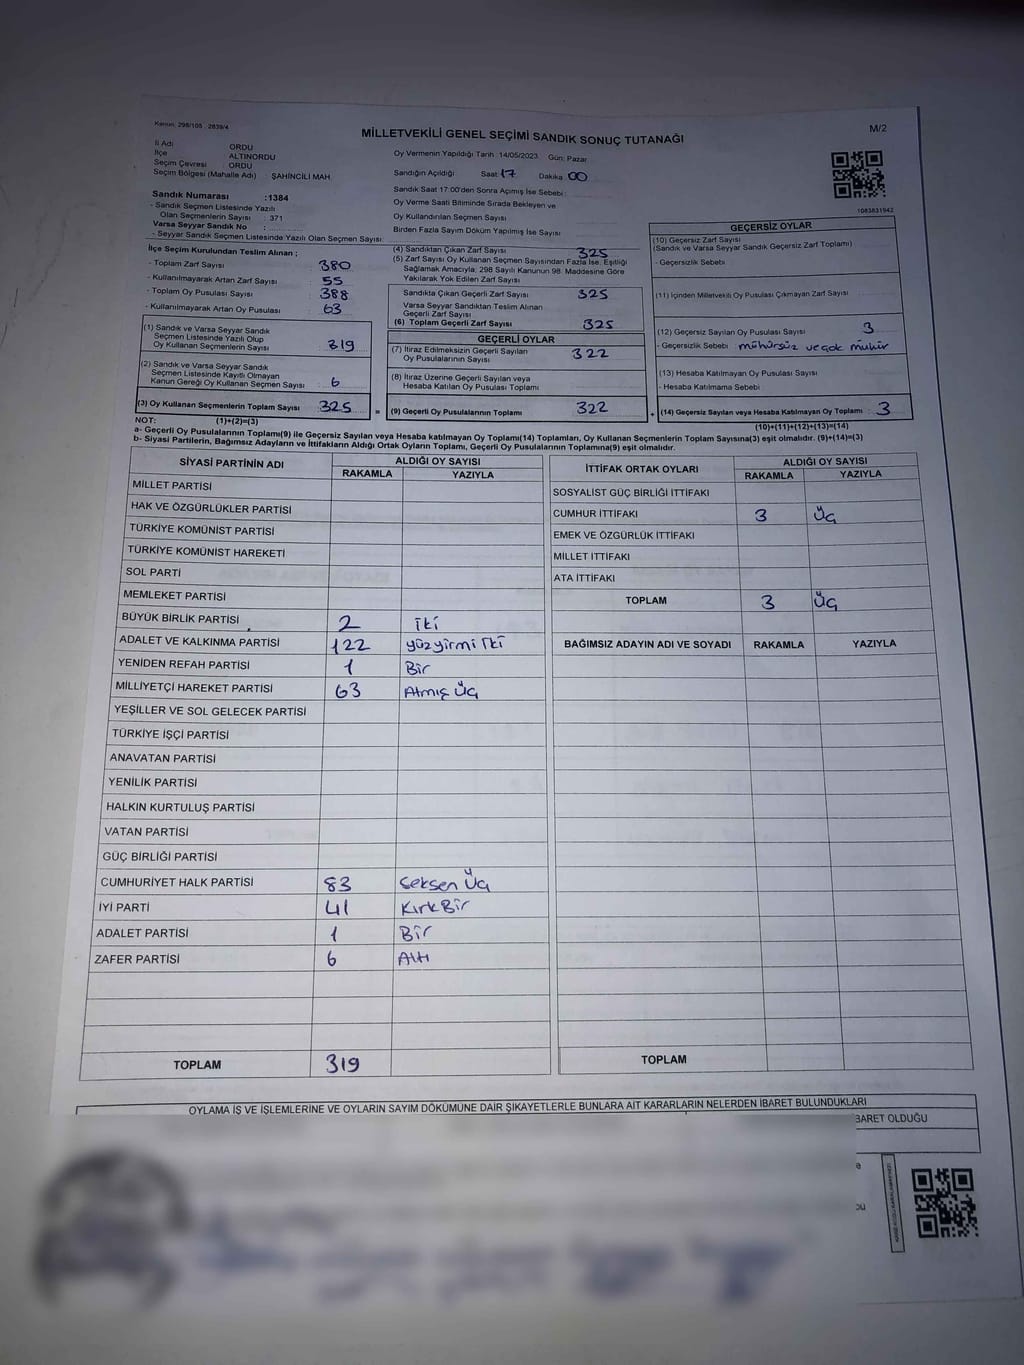 Kanun: 298/105 , 2839/4
MİLLETVEKİLİ GENEL SEÇİMİ SANDIK SONUÇ TUTANAĞI
M/2
İl Adı ORDU
İlçe ALTINORDU
Seçim Çevresi ORDU
Seçim Bölgesi (Mahalle Adı) : ŞAHİNCİLİ MAH.
Sandık Numarası :1384
- Sandık Seçmen Listesinde Yazılı
Olan Seçmenlerin Sayısı : 371
Varsa Seyyar Sandık No :
- Seyyar Sandık Seçmen Listesinde Yazılı Olan Seçmen Sayısı:
Oy Vermenin Yapıldığı Tarih :14/05/2023 Gün: Pazar
Sandığın Açıldığı Saat: 17 Dakika 00
Sandık Saat 17:00'den Sonra Açımış İse Sebebi:
Oy Verme Saati Bitiminde Sırada Bekleyen ve
Oy Kullandırılan Seçmen Sayısı
Birden Fazla Sayım Döküm Yapılmış İse Sayısı
1083831942
İlçe Seçim Kurulundan Teslim Alınan ;
- Toplam Zarf Sayısı : 380
- Kullanılmayarak Artan Zarf Sayısı : 55
- Toplam Oy Pusulası Sayısı : 388
- Kullanılmayarak Artan Oy Pusulası : 63
(1) Sandık ve Varsa Seyyar Sandık
Seçmen Listesinde Yazılı Olup
Oy Kullanan Seçmenlerin Sayısı : 319
(2) Sandık ve Varsa Seyyar Sandık
Seçmen Listesinde Kayıtlı Olmayan
Kanun Gereği Oy Kullanan Seçmen Sayısı : 6
(3) Oy Kullanan Seçmenlerin Toplam Sayısı : 325
(1)+(2)=(3)
(4) Sandıktan Çıkan Zarf Sayısı 325
(5) Zarf Sayısı Oy Kullanan Seçmen Sayısından Fazla İse, Eşitliği
Sağlamak Amacıyla; 298 Sayılı Kanunun 98. Maddesine Göre
Yakılarak Yok Edilen Zarf Sayısı
Sandıkta Çıkan Geçerli Zarf Sayısı : 325
Varsa Seyyar Sandıktan Teslim Alınan
Geçerli Zarf Sayısı
(6) Toplam Geçerli Zarf Sayısı : 325
GEÇERLİ OYLAR
(7) İtiraz Edilmeksizin Geçerli Sayılan
Oy Pusulalarının Sayısı : 322
(8) İtiraz Üzerine Geçerli Sayılan veya
Hesaba Katılan Oy Pusulası Toplamı
= (9) Geçerli Oy Pusulalarının Toplamı : 322
GEÇERSİZ OYLAR
(10) Geçersiz Zarf Sayısı
(Sandık ve Varsa Seyyar Sandık Geçersiz Zarf Toplamı)
- Geçersizlik Sebebi
(11) İçinden Milletvekili Oy Pusulası Çıkmayan Zarf Sayısı
(12) Geçersiz Sayılan Oy Pusulası Sayısı : 3
- Geçersizlik Sebebi mühürsüz ve çok mühür
(13) Hesaba Katılmayan Oy Pusulası Sayısı
- Hesaba Katılmama Sebebi
+ (14) Geçersiz Sayılan veya Hesaba Katılmayan Oy Toplamı : 3
(10)+(11)+(12)+(13)=(14)
NOT:
a- Geçerli Oy Pusulalarının Toplamı(9) ile Geçersiz Sayılan veya Hesaba katılmayan Oy Toplamı(14) Toplamları, Oy Kullanan Seçmenlerin Toplam Sayısına(3) eşit olmalıdır. (9)+(14)=(3)
b- Siyasi Partilerin, Bağımsız Adayların ve İttifakların Aldığı Ortak Oyların Toplamı, Geçerli Oy Pusulalarının Toplamına(9) eşit olmalıdır.
SİYASİ PARTİNİN ADI ALDIĞI OY SAYISI
RAKAMLA YAZIYLA
MİLLET PARTİSİ
HAK VE ÖZGÜRLÜKLER PARTİSİ
TÜRKİYE KOMÜNİST PARTİSİ
TÜRKİYE KOMÜNİST HAREKETİ
SOL PARTİ
MEMLEKET PARTİSİ
BÜYÜK BİRLİK PARTİSİ 2 iki
ADALET VE KALKINMA PARTİSİ 122 yüzyirmi iki
YENİDEN REFAH PARTİSİ 1 Bir
MİLLİYETÇİ HAREKET PARTİSİ 63 Atmış Üç
YEŞİLLER VE SOL GELECEK PARTİSİ
TÜRKİYE İŞÇİ PARTİSİ
ANAVATAN PARTİSİ
YENİLİK PARTİSİ
HALKIN KURTULUŞ PARTİSİ
VATAN PARTİSİ
GÜÇ BİRLİĞİ PARTİSİ
CUMHURİYET HALK PARTİSİ 83 Seksen Üç
İYİ PARTİ 41 Kırk Bir
ADALET PARTİSİ 1 Bir
ZAFER PARTİSİ 6 Altı
TOPLAM 319
İTTİFAK ORTAK OYLARI ALDIĞI OY SAYISI
RAKAMLA YAZIYLA
SOSYALİST GÜÇ BİRLİĞİ İTTİFAKI
CUMHUR İTTİFAKI 3 Üç
EMEK VE ÖZGÜRLÜK İTTİFAKI
MİLLET İTTİFAKI
ATA İTTİFAKI
TOPLAM 3 Üç
BAĞIMSIZ ADAYIN ADI VE SOYADI RAKAMLA YAZIYLA
TOPLAM
OYLAMA İŞ VE İŞLEMLERİNE VE OYLARIN SAYIM DÖKÜMÜNE DAİR ŞİKAYETLERLE BUNLARA AİT KARARLARIN NELERDEN İBARET BULUNDUKLARI
BARET OLDUĞU